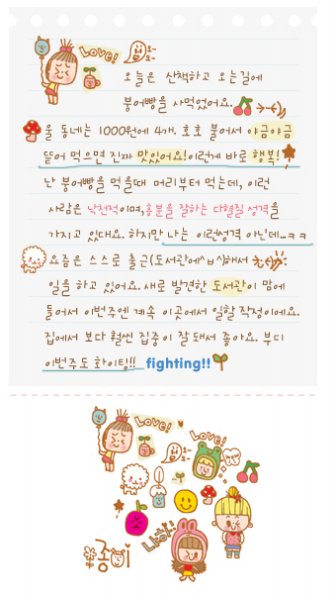 Love!
오늘은 산책하고 오는길에
붕어빵을 사먹었어요.
울 동네는 1000원에 4개. 호호 불어서 야금야금
뜯어 먹으면 진짜 맛있어요! 이런게 바로 행복!
난 붕어빵을 먹을때 머리부터 먹는데, 이런
사람은 낙천적이며, 흥분을 잘하는 다혈질 성격을
가지고 있대요. 하지만 나는 이런성격 아닌데...ㅋㅋ
요즘은 스스로 출근(도서관에^ㅂ^)해서
일을 하고 있어요. 새로 발견한 도서관이 맘에
들어서 이번주엔 계속 이곳에서 일할 작정이에요.
집에서 보다 훨씬 집중이 잘 돼서 좋아요. 부디
이번주도 화이팅!! fighting!!
Love!
Love!